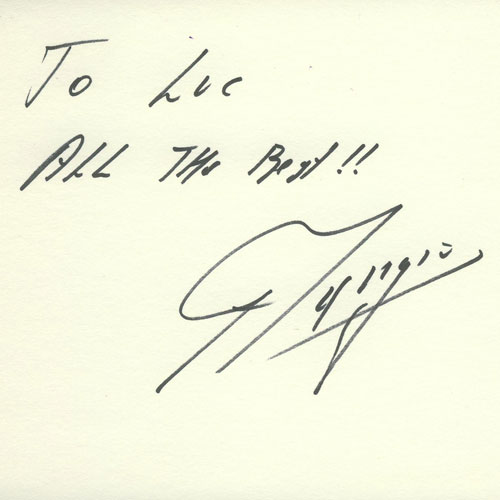 To Luc
All The Best!!